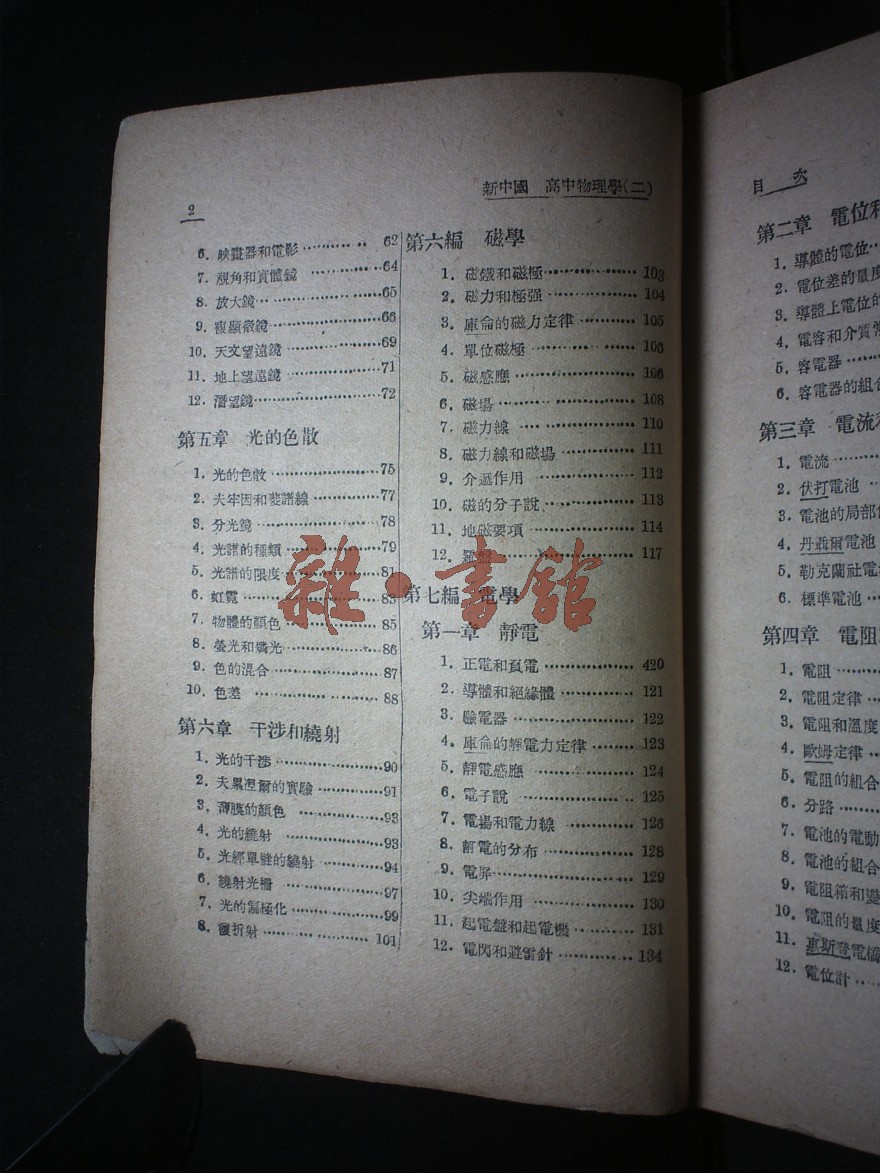 2
新中國 高中物理學(二)
6. 映畫器和電影 62
7. 視角和實體鏡 64
8. 放大鏡 65
9. 複顯微鏡 66
10. 天文望遠鏡 69
11. 地上望遠鏡 71
12. 潛望鏡 72
第五章 光的色散
1. 光的色散 75
2. 夫牢因和斐譜線 77
3. 分光鏡 78
4. 光譜的種類 79
5. 光譜的限度 81
6. 虹霓 83
7. 物體的顏色 85
8. 螢光和燐光 86
9. 色的混合 87
10. 色差 88
第六章 干涉和繞射
1. 光的干涉 90
2. 夫累涅爾的實驗 91
3. 薄膜的顏色 93
4. 光的繞射 93
5. 光經單縫的繞射 94
6. 繞射光柵 97
7. 光的偏極化 99
8. 雙折射 101
第六編 磁學
1. 磁鐵和磁極 103
2. 磁力和極强 104
3. 庫侖的磁力定律 105
4. 單位磁極 106
5. 磁感應 106
6. 磁場 108
7. 磁力線 110
8. 磁力線和磁場 111
9. 介遞作用 112
10. 磁的分子說 113
11. 地磁要項 114
12. 羅盤 117
第七編 電學
第一章 靜電
1. 正電和負電 420
2. 導體和絕緣體 121
3. 驗電器 122
4. 庫侖的靜電力定律 123
5. 靜電感應 124
6. 電子說 125
7. 電場和電力線 126
8. 靜電的分布 128
9. 電屏 129
10. 尖端作用 130
11. 起電盤和起電機 131
12. 電閃和避雷針 134
雜·書館
目 次
第二章 電位和
1. 導體的電位
2. 電位差的量度
3. 導體上電位的
4. 電容和介質常
5. 容電器
6. 容電器的組合
第三章 電流和
1. 電流
2. 伏打電池
3. 電池的局部
4. 丹聶爾電池
5. 勒克蘭社電
6. 標準電池
第四章 電阻
1. 電阻
2. 電阻定律
3. 電阻和溫度
4. 歐姆定律
5. 電阻的組合
6. 分路
7. 電池的電動
8. 電池的組合
9. 電阻箱和
10. 電阻的量度
11. 惠斯登電橋
12. 電位計